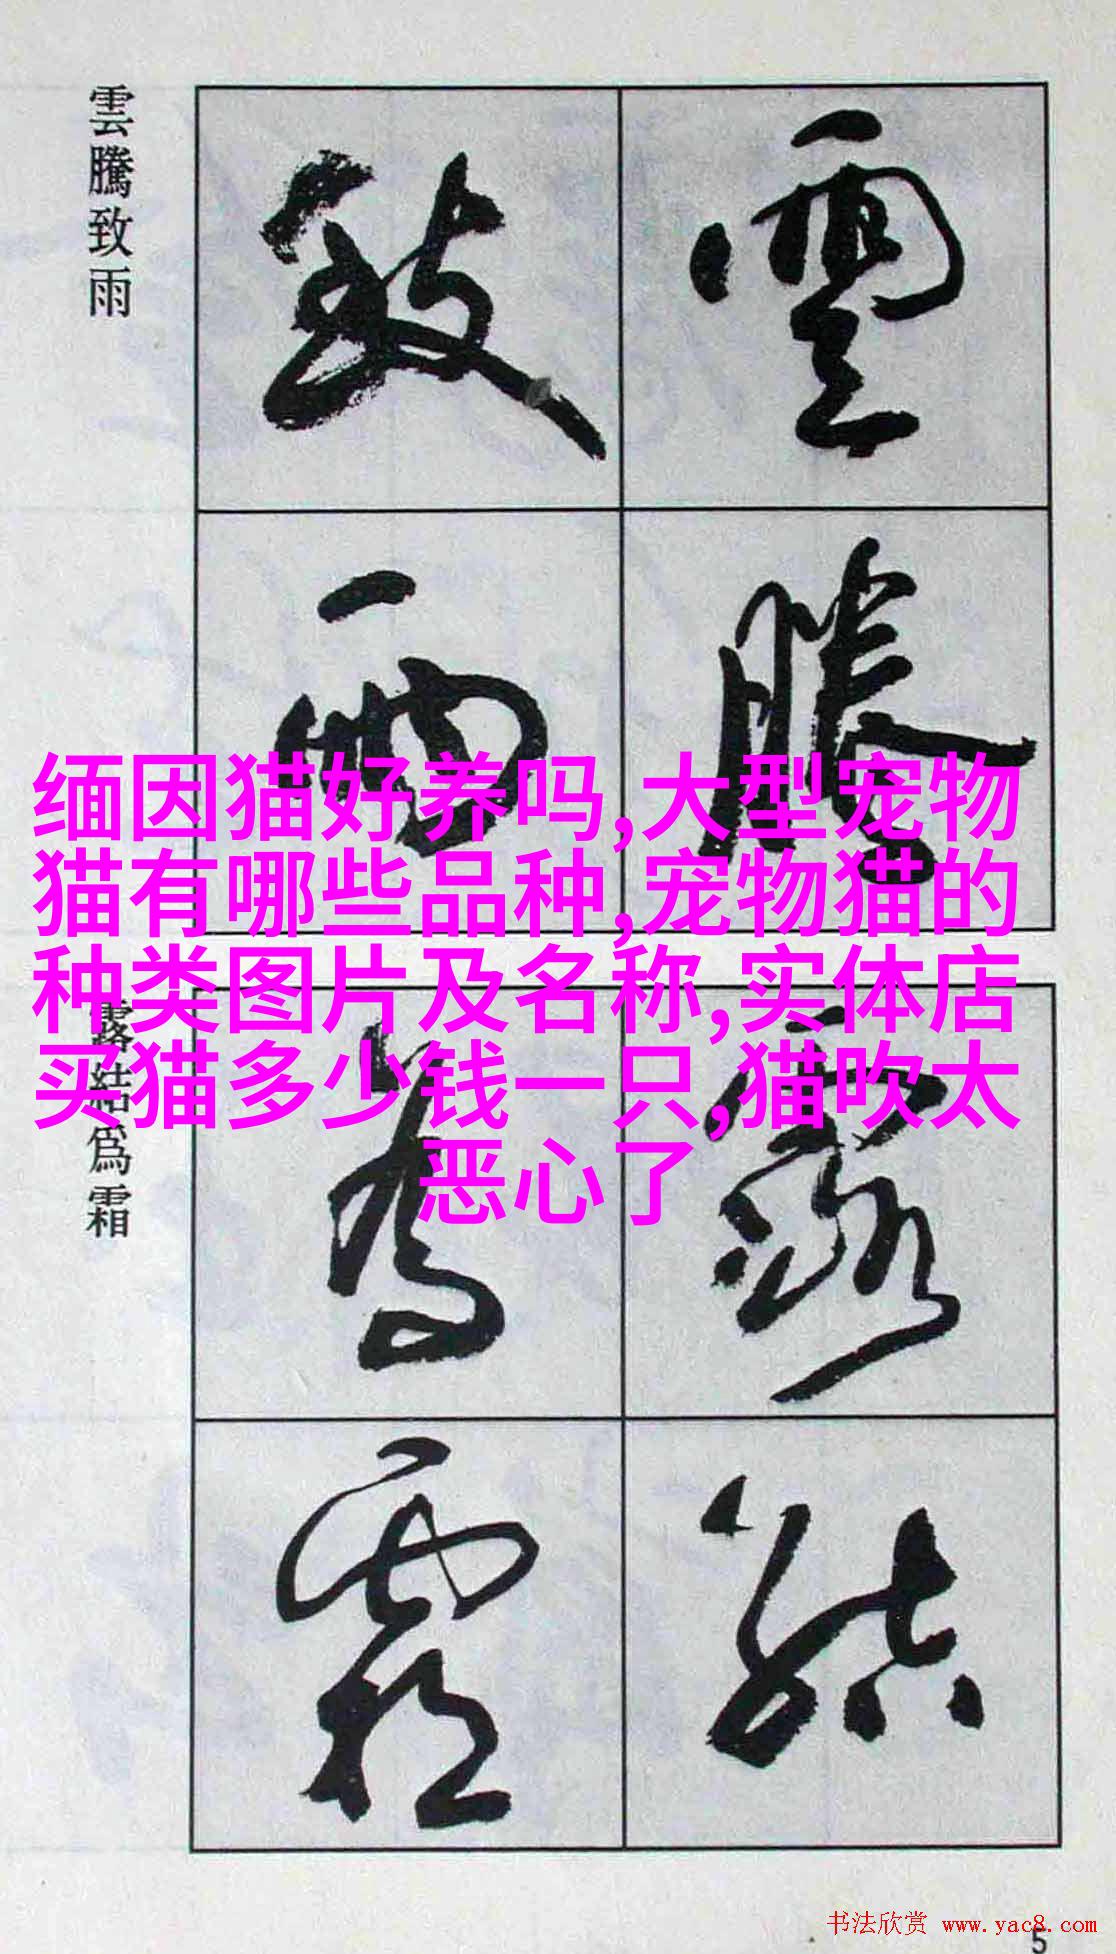 雲騰致雨
雲
騰
致
雨
缅因猫好养吗,大型宠物
猫有哪些品种,宠物猫的
种类图片及名称,实体店
买猫多少钱一只,猫吹太
恶心了
露結為霜
露
結
為
霜
书法欣赏 www.yac8.com
5